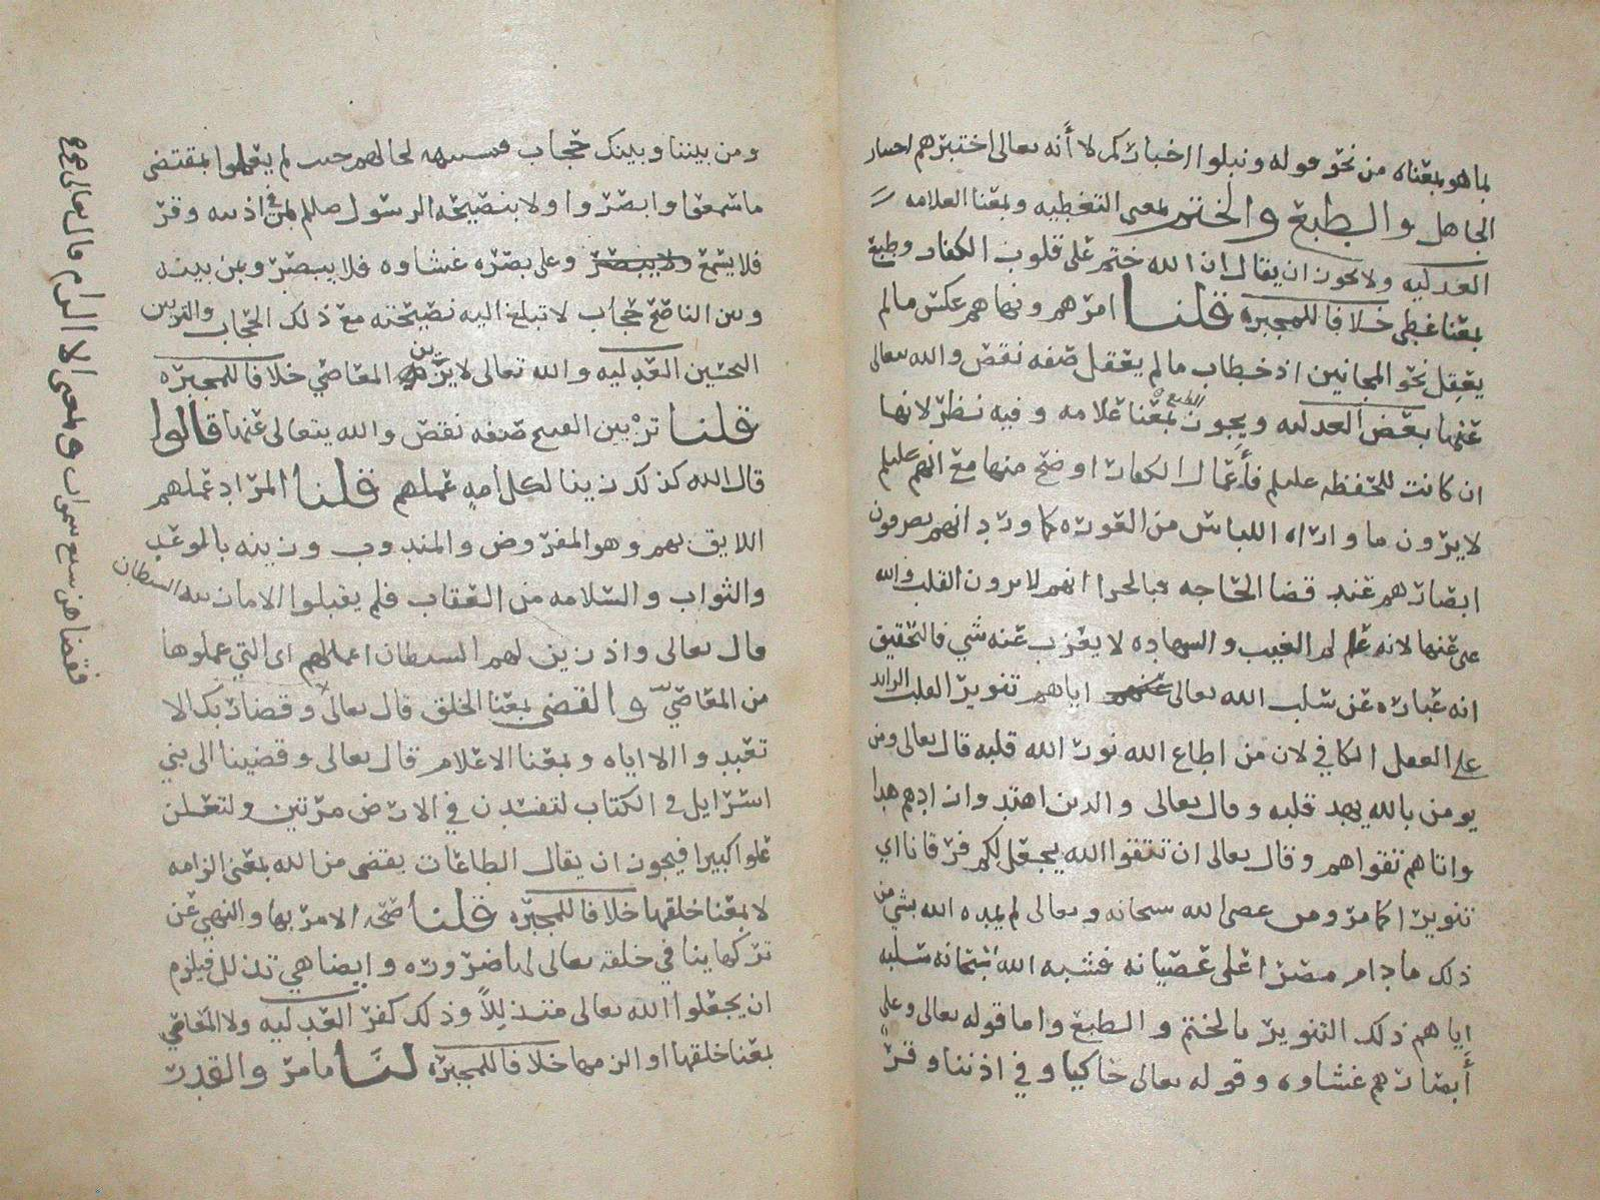 بما هو بمعناه من نحو قوله ونبلوا اخباركم لا أنه تعالى اختبرهم اختبار
الجاهل والطبع والختم بمعنى التغطيه وبمعنا العلامه
العدليه ولا يجوز ان يقال ان الله ختم على قلوب الكفار وطبع
بمعنا غطى خلافا للمجبره قلنا امرهم ونهاهم عكس ما لم
يعقل نحو المجانين اذ خطاب ما لم يعقل صفه نقص والله تعالى
عنها بعض العدليه ويجوز بمعنا علامه وفيه نظر لانها
الطبع
ان كانت للحفظه عليلم فأعمال الكفار اوضح منها مع انهم عليلم
لا يرون ما واراه اللباس من العوره كما ورد انهم يصرفون
ابصارهم عند قضا الحاجه فبالحرا انهم لا يرون القلب والله
غني عنها لانه عالم الغيب والشهاده لا يعزب عنه شي فالتحقيق
انه عباره عن سلب الله تعالى اياهم تنوير القلب الزائد
على العقل الكافي لان من اطاع الله نور الله قلبه قال تعالى ومن
يومن بالله يهد قلبه وقال تعالى والذين اهتدوا زادهم هدا
واتاهم تقواهم وقال تعالى ان تتقوا الله يجعل لكم فرقانا اي
تنويرا كما مر ومن عصى الله سبحانه وتعالى لم يمده الله بشي من
ذلك ما دام مصرا على عصيانه فشبه الله سبحانه سلبه
اياهم ذلك التنوير بالختم والطبع واما قوله تعالى وعلى
أبصارهم غشاوه وقوله تعالى حاكيا وفي اذننا وقر
ومن بيننا وبينك حجاب فتشبيه لحالهم حيث لم يعملوا بمقتضى
ما سمعوا وابصروا ولا بنصيحه الرسول صللم بمن في اذنيه وقر
فلا يسمع وعلى بصره غشاوه فلا يبصر ومن بينه
وبين الناصح حجاب لا تبلغ اليه نصيحته مع ذلك الحجاب والتزيين
التحسين العدليه والله تعالى لا يزين المعاصي خلافا للمجبره
قلنا تزيين القبيح صفه نقص والله يتعالى عنها قالوا
قال الله كذلك زينا لكل امه عملهم قلنا المراد عملهم
اللايق بهم وهو المفروض والمندوب وزينه بالوعد
والثواب والسلامه من العقاب فلم يقبلوا الا ما زينه الشيطان
قال تعالى واذ زين لهم الشيطان اعمالهم اي التي عملوها
من المعاصي والقضى بمعنا الخلق قال تعالى وقضا ربك الا
تعبدوا الا اياه وبمعنا الاعلام قال تعالى وقضينا الى بني
اسرايل في الكتاب لتفسدن في الارض مرتين ولتعلن
علوا كبيرا فيجوز ان يقال الطاعات بقضى من الله بمعنى الزامه
لا بمعنا خلقها خلافا للمجبره قلنا صحه الامر بها والنهي عن
تركها ينافي خلقه تعالى لها ضروره وايضا هي تذلل فيلزم
ان يجعلوا الله تعالى متذللاً وذلك كفر العدليه ولا المعاصي
بمعنا خلقها او الزم بها خلافا للمجبره لنا ما مر والقدر
فقضاهن سبع سموات وبمعنى الالزام قال تعالى